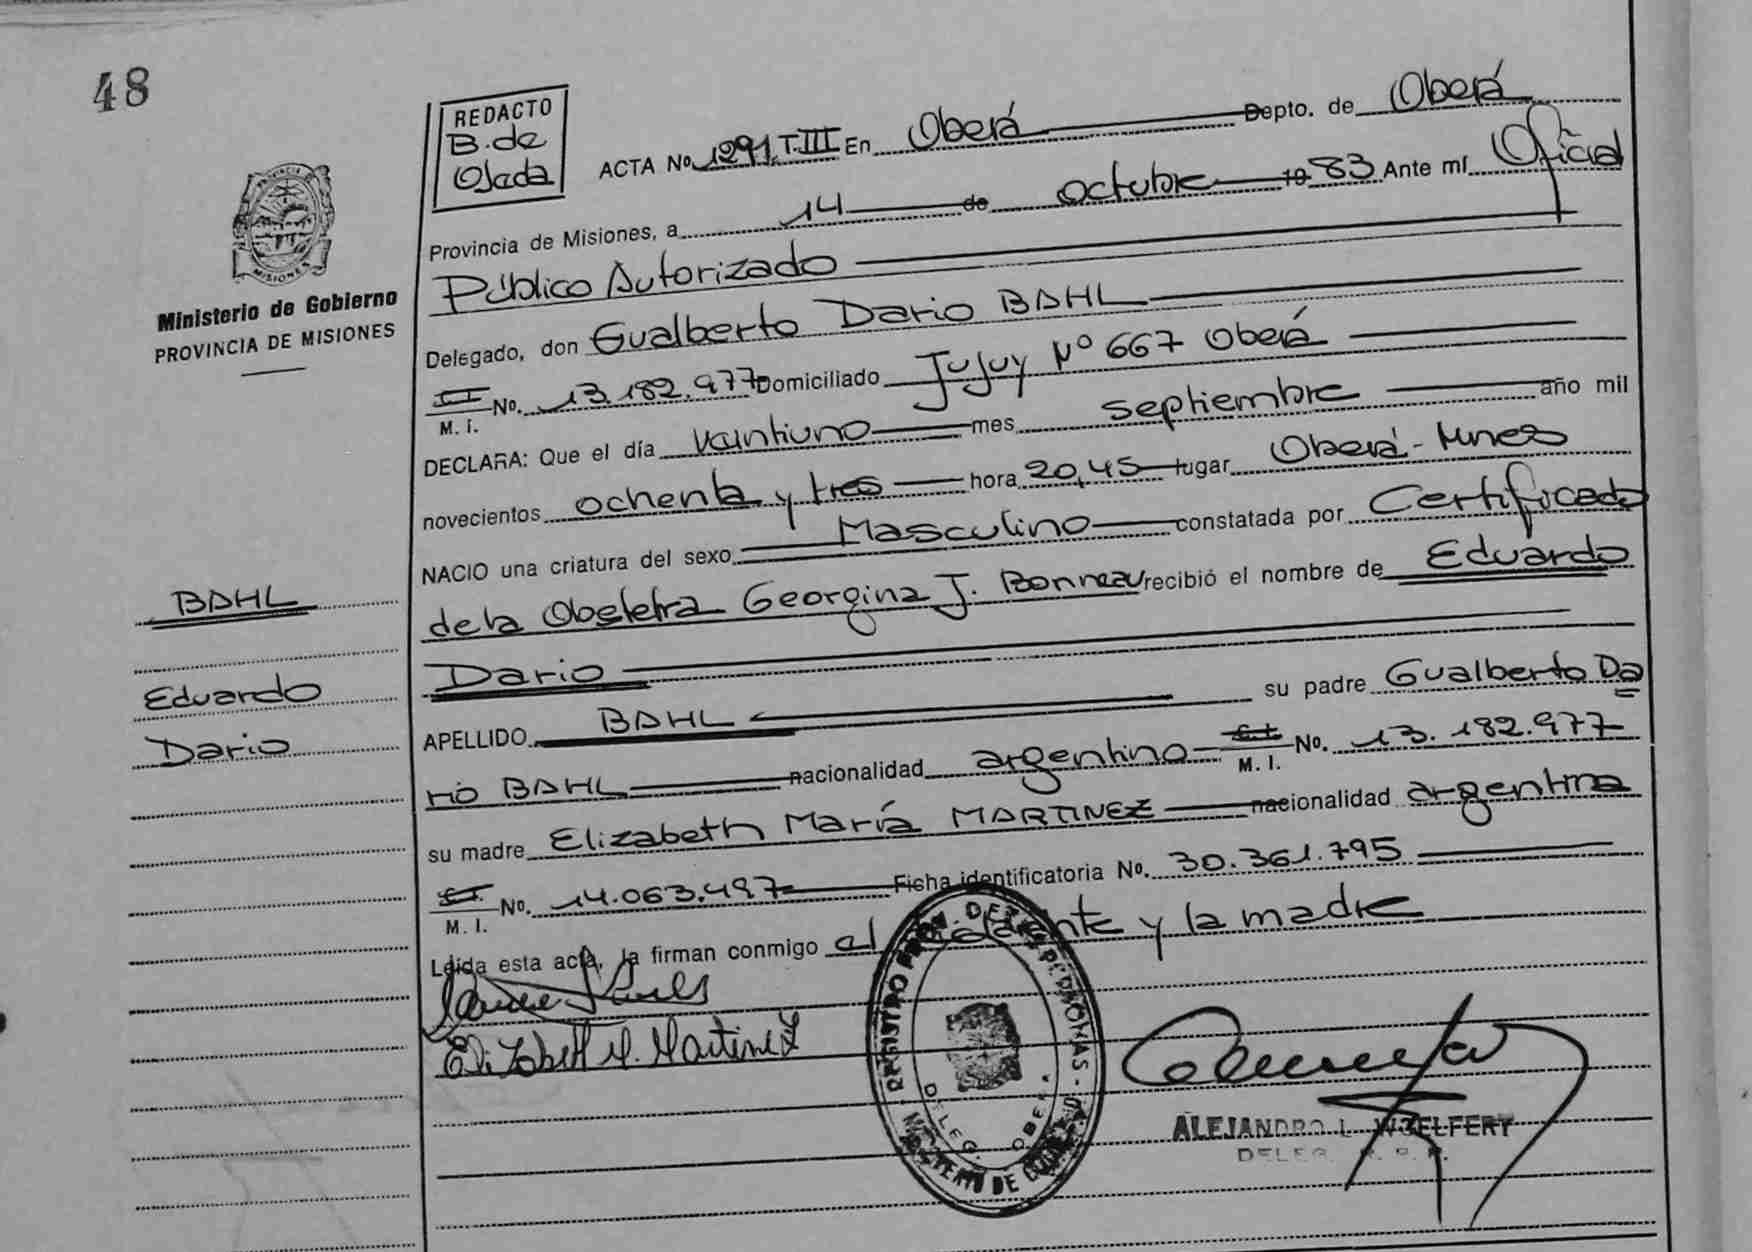 48
REDACTO
B. de
Ojeda
ACTA No. 1291, T.III En Oberá Depto. de Oberá
Provincia de Misiones, a 14 de octubre 19 83 Ante mí Oficial
Público Autorizado
Delegado, don Gualberto Dario BAHL
M. I. No. 13.182.977 Domiciliado Jujuy Nº 667 Oberá
DECLARA: Que el día veintiuno mes septiembre año mil
novecientos ochenta y tres hora 20,45 lugar Oberá - Mnes
NACIO una criatura del sexo Masculino constatada por Certificado
de la Obstetra Georgina J. Bonneau recibió el nombre de Eduardo
Dario
APELLIDO BAHL su padre Gualberto Da
rio BAHL nacionalidad argentino M. I. No. 13.182.977
su madre Elizabeth María MARTINEZ nacionalidad argentina
M. I. No. 14.063.497 Ficha identificatoria No. 30.361.795
Leída esta acta, la firman conmigo el y la madre
Elizabeth M. Martinez
MISIONES
Ministerio de Gobierno
PROVINCIA DE MISIONES
BAHL
Eduardo
Dario
REGISTRO PROV. DE LAS PERSONAS
DELEG. OBERA
ALEJANDRO L. WZELFERT
DELEG. R. P. P.